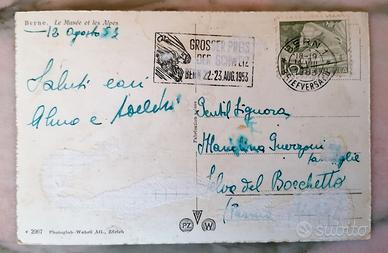 Berne. Le Musée et les Alpes
12 Agosto 53
GROSSER PREIS
DER SCHWEIZ
BERN 22-23. AUG. 1953
BERN 1
BRIEFVERSAND
Saluti cari
Alma e
Gentil Signora
e famiglia
Selva del Bocchetto
(Parma)
PZ W
2967 Photoglob-Wehrli AG., Zürich
subito